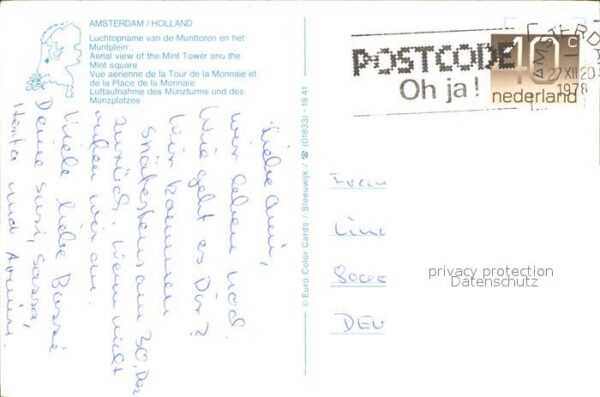 AMSTERDAM / HOLLAND
Luchtopname van de Munttoren en het
Muntplein
Aerial view of the Mint Tower anu the
Mint square
Vue aérienne de la Tour de la Monnaie et
de la Place de la Monnaie.
Luftaufnahme des Münzturms und des
Münzplatzes
Liebe
wir leben noch.
Wie geht es Dir?
Wir kommen
spätestens am 30. Dez
zurück, wenn nicht
rufen wir an.
Viele liebe Bussi
Deine Susi, Sassa,
Herta und Armin.
© Euro Color Cards / Steeuwijk / ☎ (01833) - 19 41
POSTCODE
Oh ja!
AMSTERDA
27 XII 20
1978
40 c
nederland
Frau
Linc
8000
DEU
privacy protection
Datenschutz